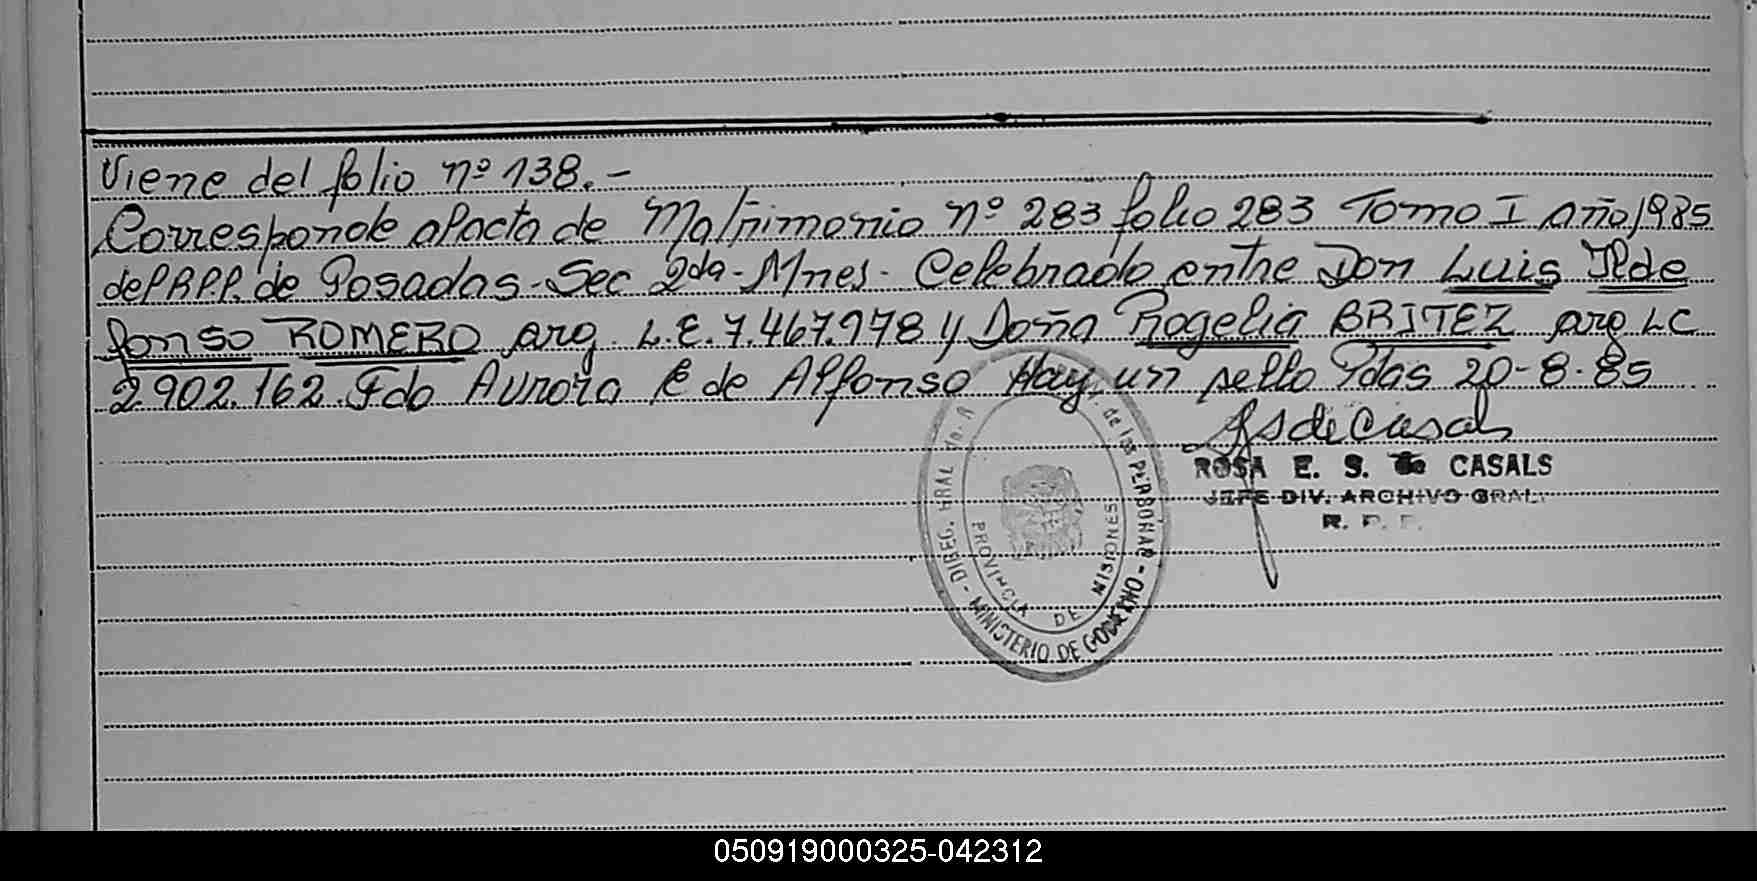 Viene del folio nº 138.-
Corresponde al acta de Matrimonio nº 283 folio 283 Tomo I año 1985
del RPP. de Posadas - Sec 2da - Mnes - Celebrado entre Don Luis Ilde
fonso ROMERO arg. L.E. 7.467.978 y Doña Rogelia BRITEZ arg LC
2.902.162 Fdo Aurora E de Alfonso Hay un sello Pdas 20-8-85
ROSA E. S. de CASALS
JEFE DIV. ARCHIVO GRAL.
R. P. P.
DIREC. GRAL de las PERSONAS - MINISTERIO DE GOBIERNO -
PROVINCIA DE MISIONES
050919000325-042312